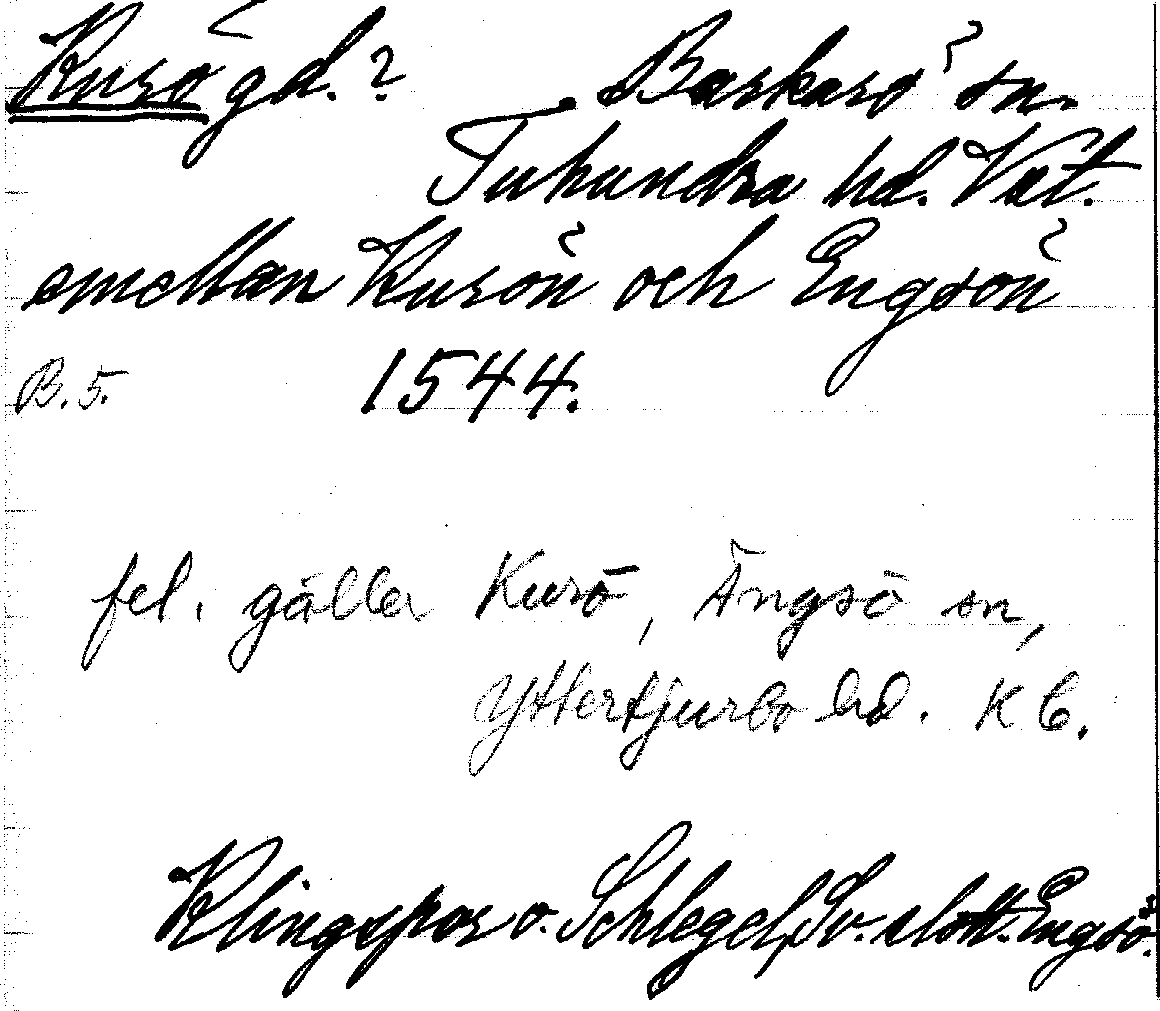 Kursö gd.? Barkarö sn.
Tuhundra hd. Vst.
emellan Kursön och Engsön
B. 5. 1544.
fel. gäller Kurö, Ängsö sn,
Yttertjurbo hd. KB.
Klingspor o. Schlegel, Sv. slott. Engsö.